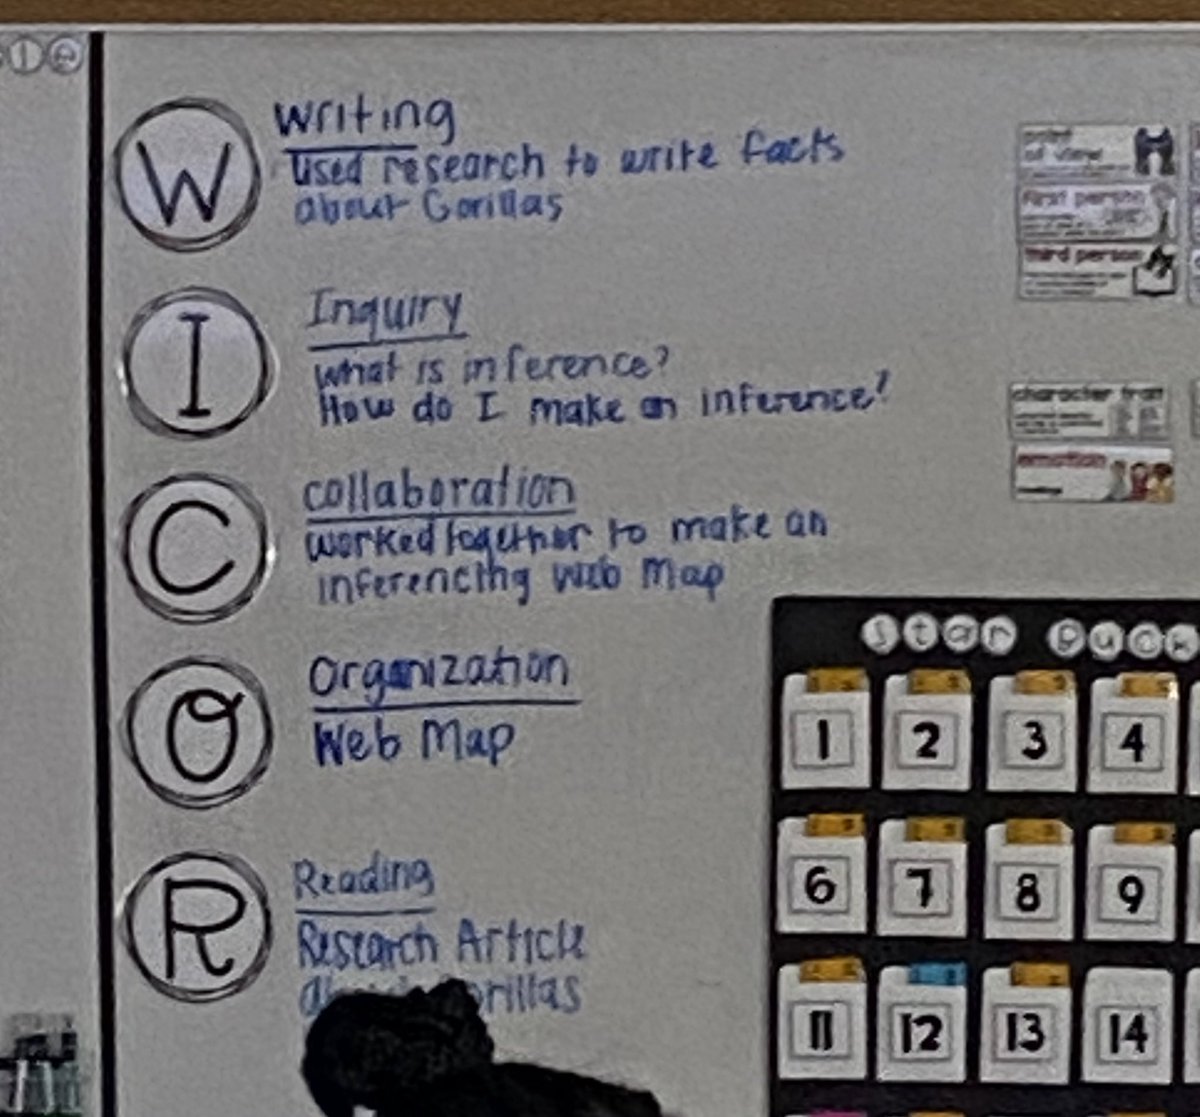 W
Writing
Used research to write facts
about Gorillas
I
Inquiry
What is inference?
How do I make an inference?
C
collaboration
worked together to make an
inferencing web Map
O
Organization
Web Map
R
Reading
Research Article
about Gorillas
of view
first person
third person
character trait
emotion
Star Buck
1 2 3 4
6 7 8 9
11 12 13 14